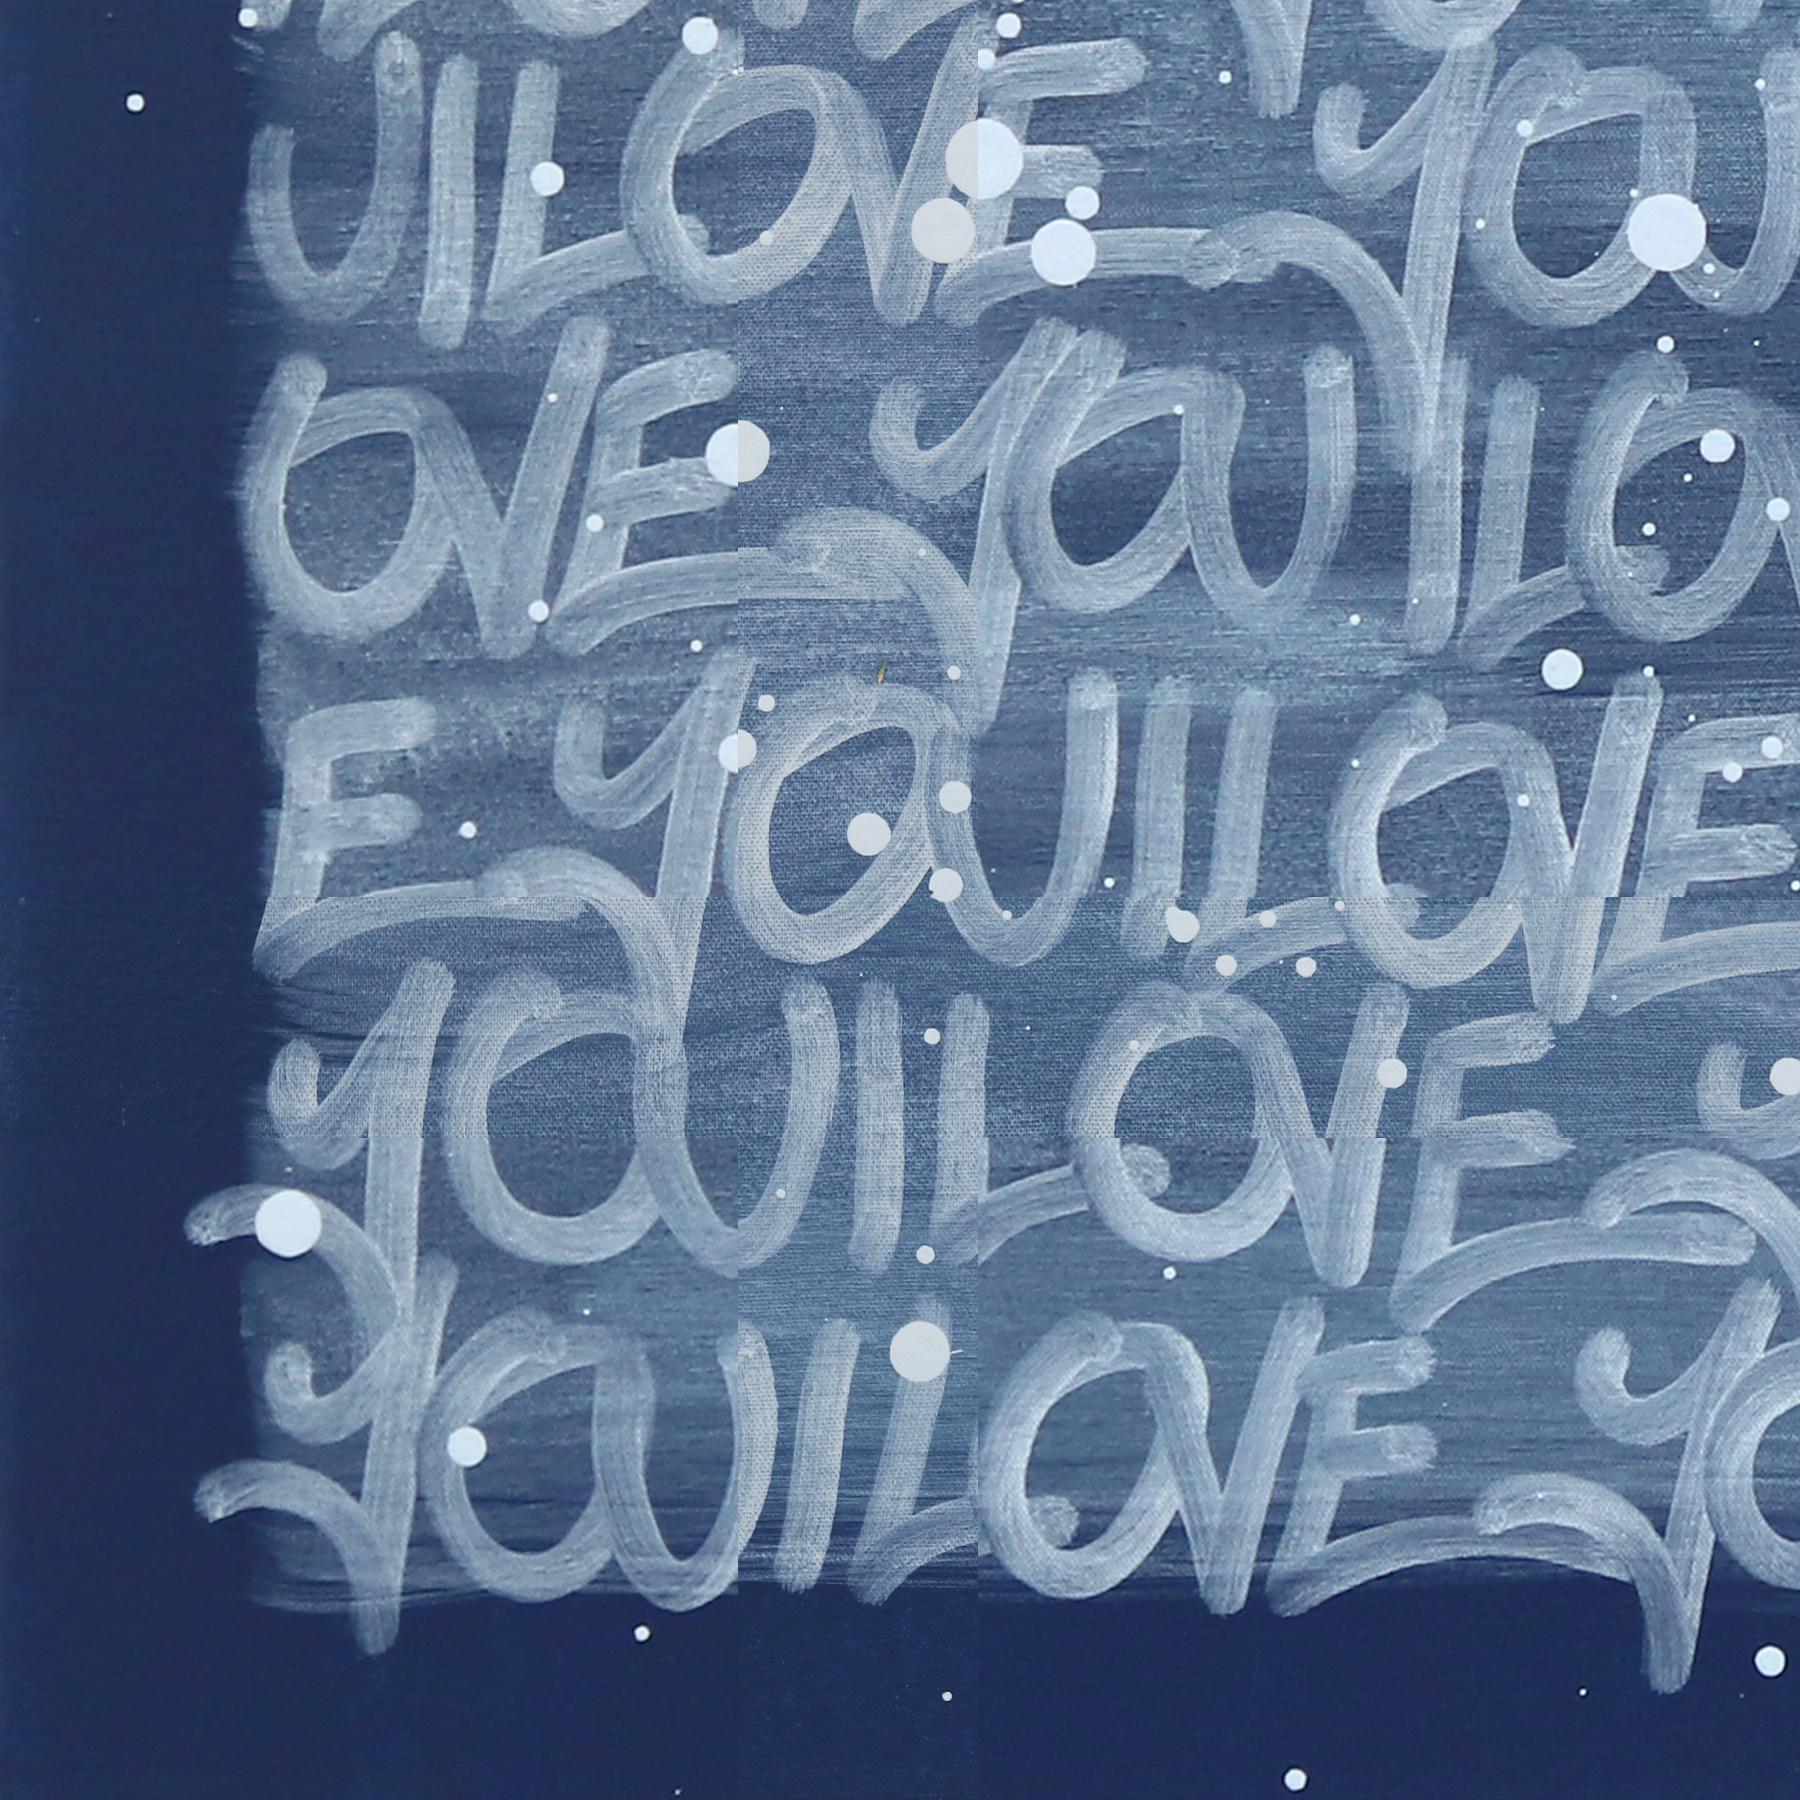 UILOVE YOU
OVE YOUILO
E YOUILOVE
YOUILOVE Y
YOUILOVE YO